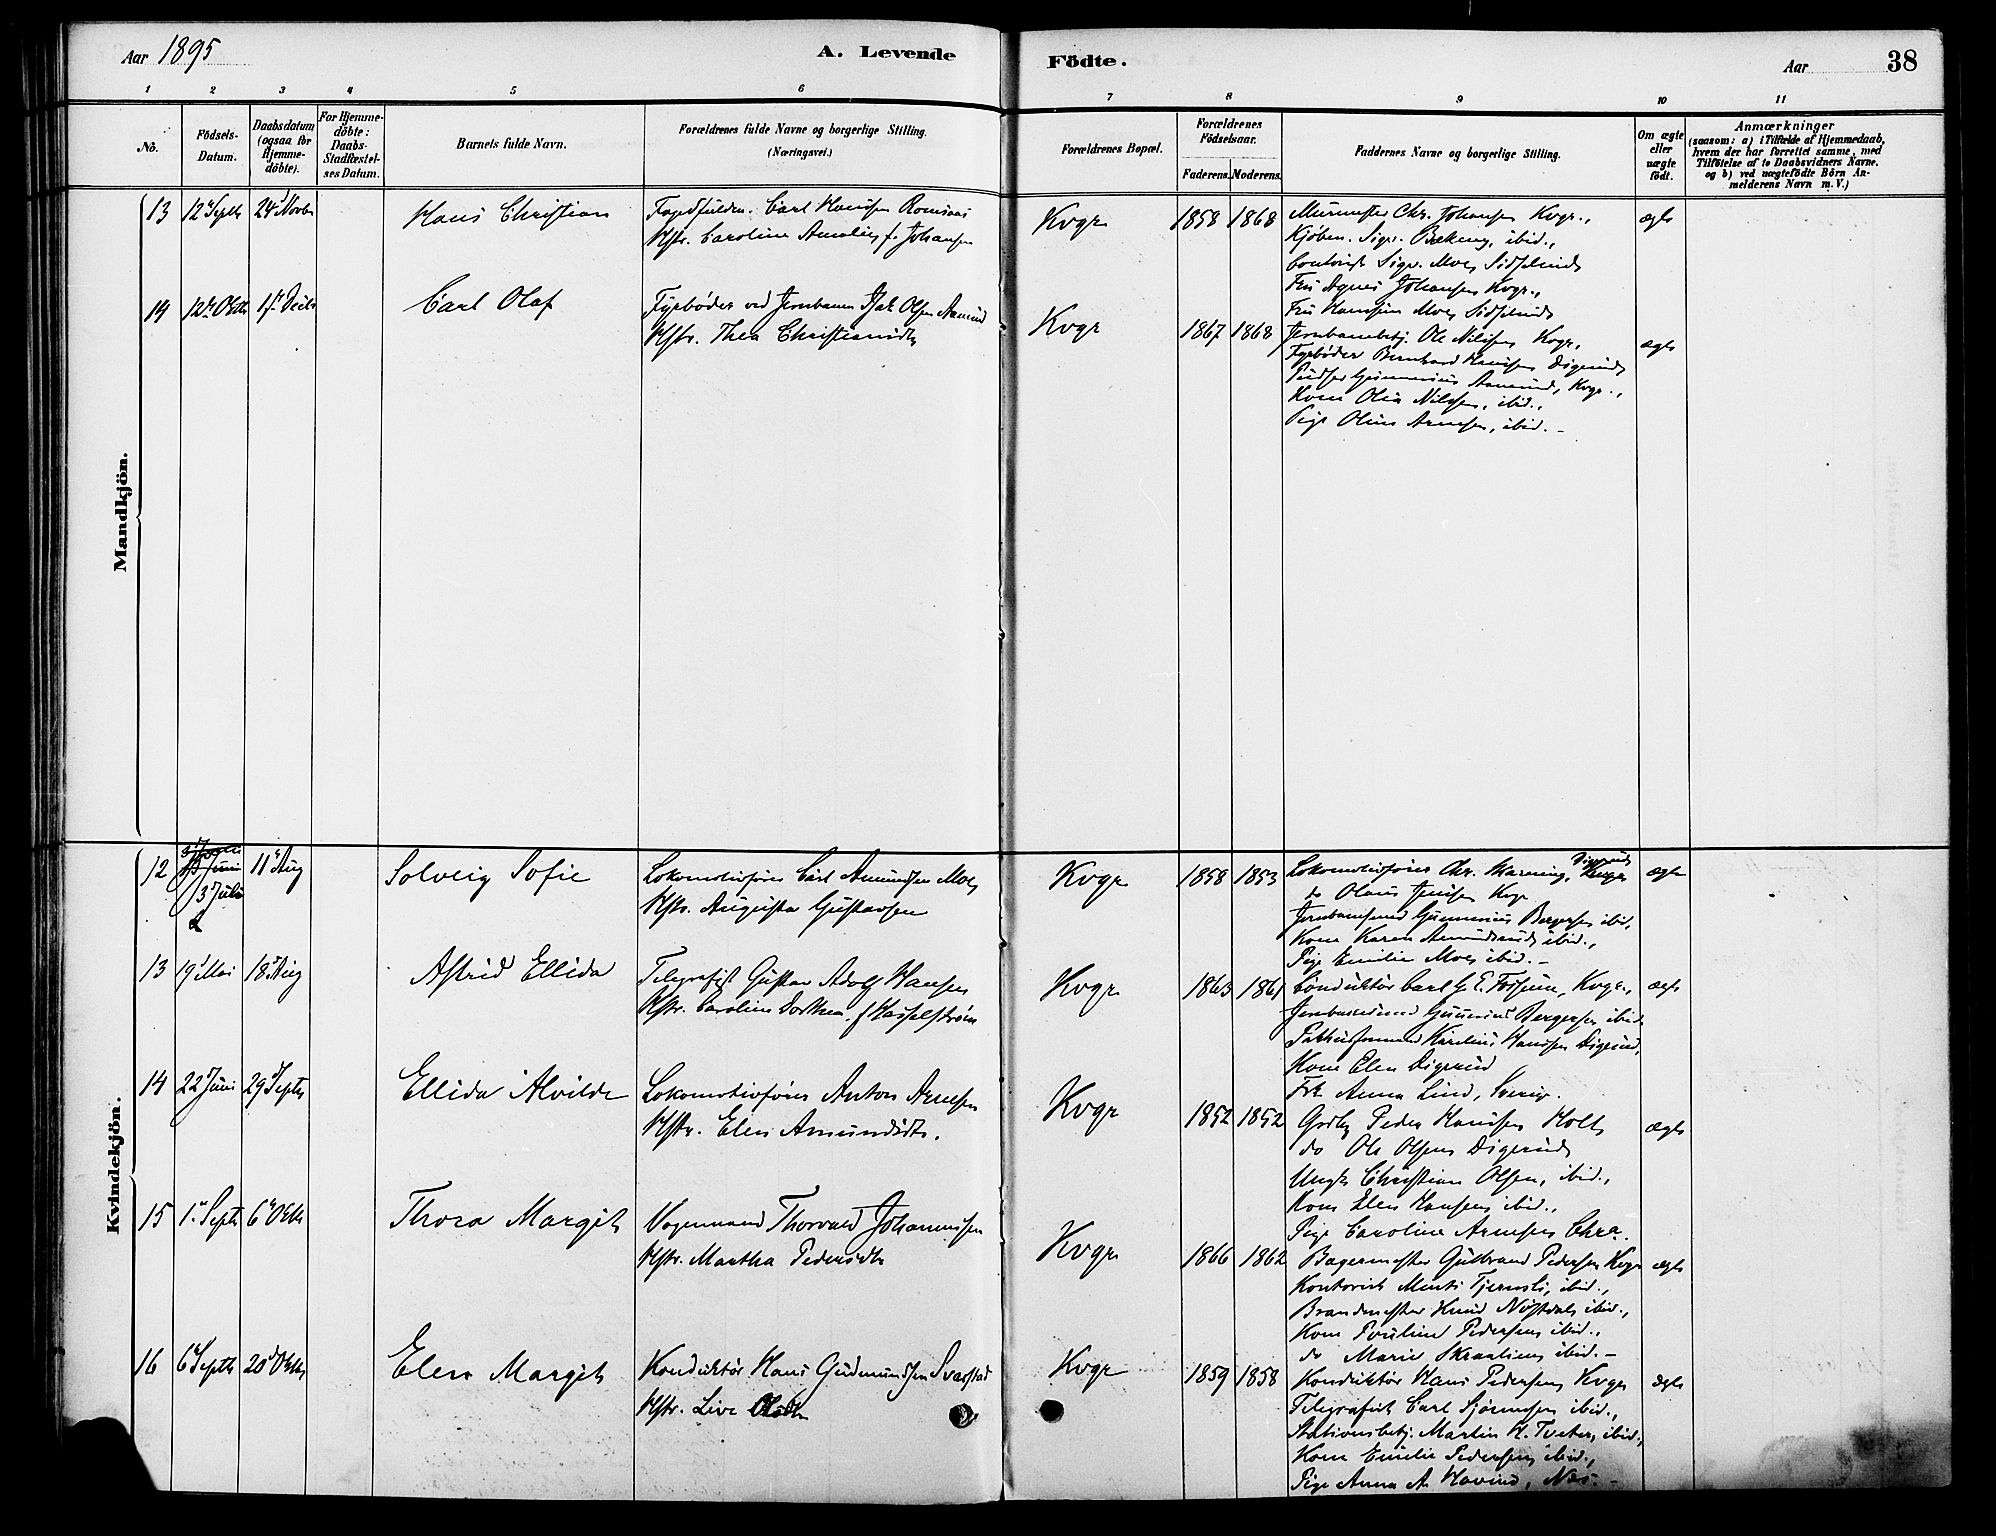 Aar 1895
A. Levende
Födte.
Aar
38
1 2 3 4 5 6 7 8 9 10 11
No.
Födsels-Datum.
Daabsdatum (ogsaa for Hjemme-döbte).
For Hjemme-döbte: Daabs-Stadfæstel-ses Datum.
Barnets fulde Navn.
Forældrenes fulde Navne og borgerlige Stilling.
(Næringsvei.)
Forældrenes Bopæl.
Forældrenes Födselsaar.
Faderens. Moderens.
Faddernes Navne og borgerlige Stilling.
Om ægte eller uægte födt.
Anmærkninger
(saasom: a) i Tilfælde af Hjemmedaab,
hvem der har forrettet samme, med
Tilföielse af to Daabsvidners Navne.
og b) ved uægtefödte Börn An-
melderens Navn m. V.)
Mandkjön.
13 12 Septb 24 Novbr Hans Christian
Carl Hansen Romsaas
Hstr. Caroline Amalie f. Johansen
Kvgr 1858 1868 ægte
Murmester Chr. Johansen Kvgr.,
Kjøbm. Sigv. Brekeng, ibid.,
Contorist Sigv. Moe, Sidselrud
Fru Agnes Johansen Kvgr.,
Fru Hansine Moe, Sidselrud
14 12 Octb 1 Decbr Carl Olaf
Fyrbøder ved Jernbanen Isak Olsen Aamund
Hstr. Thea Christiansdtr
Kvgr 1867 1868 ægte
Jernbanebetj. Ole Nilsen Kvgr,
Fyrbøder Bernhard Hansen Digerud
Pudser Gunnerius Aamund, Kvgr.,
Kone Olia Nilsen, ibid.,
Pige Oline Arnesen, ibid. –
Kvindekjön.
12 3 Juli 11 Aug Solveig Sofie
Lokomotivfører Carl Amundsen Moe
Hstr. Augusta Gustavsen
Kvgr 1858 1853 ægte
Lokomotivfører Chr. Marning, Digerud
do Olaus Jensen Kvgr
Jernbanemand Gunnerius Bergersen ibid,
Kone Karen Amundsrud ibid.,
Pige Emilie Moe, ibid. –
13 19 Mai 18 Aug Astrid Ellida
Telegrafist Gustav Adolf Hansen
Hstr. Caroline Dorthea f. Hasselstrøm
Kvgr 1863 1861 ægte
Conduktør Carl G. E. Fossum, Kvgr.,
Jernbanemand Gunnerius Bergersen ibid.
Pakhusformand Karelius Hansen Digerud,
Kone Elen Digerud
Frk Anna Lind, Sverig.
14 22 Juni 29 Septb Ellida Alvilde
Lokomotivfører Anton Arnesen
Hstr. Elen Amundsdtr.
Kvgr 1852 1852 ægte
Grdbr Peder Hansen Holt
do Ole Olsen Digerud
Ungk Christian Olsen, ibid.,
Kone Elen Hansen ibid.,
Pige Caroline Arnesen Chra.
15 1 Septb 6 Octb Thora Margit
Vognmand Thorvald Johannesen
Hstr. Martha Pedersdtr
Kvgr 1866 1862 ægte
Bagermester Gulbrand Pedersen Kvgr
Kontorist Tjernsli, ibid.,
Brandmester Knud Nøstdal ibid.,
Kone Pouline Pedersen ibid.,
do Marie Skraastien ibid. –
16 6 Septb 20 Octb Elen Margit
Konduktør Hans Gudmundsen Svarstad
Hstr. Live Olsdtr
Kvgr 1859 1858 ægte
Konduktør Hans Pedersen, Kvgr
Telegrafist Carl Sjørensen ibid.,
Stationsbetj. Martin H. Tveter, ibid.,
Kone Emilie Pedersen ibid.,
Pige Anna A. Hovind, Næs. –